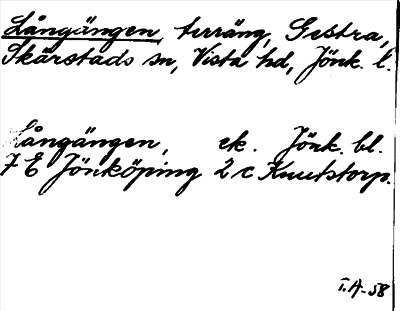 Långängen, terräng, Gestra,
Skärstads sn, Vista hd, Jönk. l.
Långängen, ek. Jönk. bl.
7 E Jönköping 2 c Knutstorp.
I.A-58